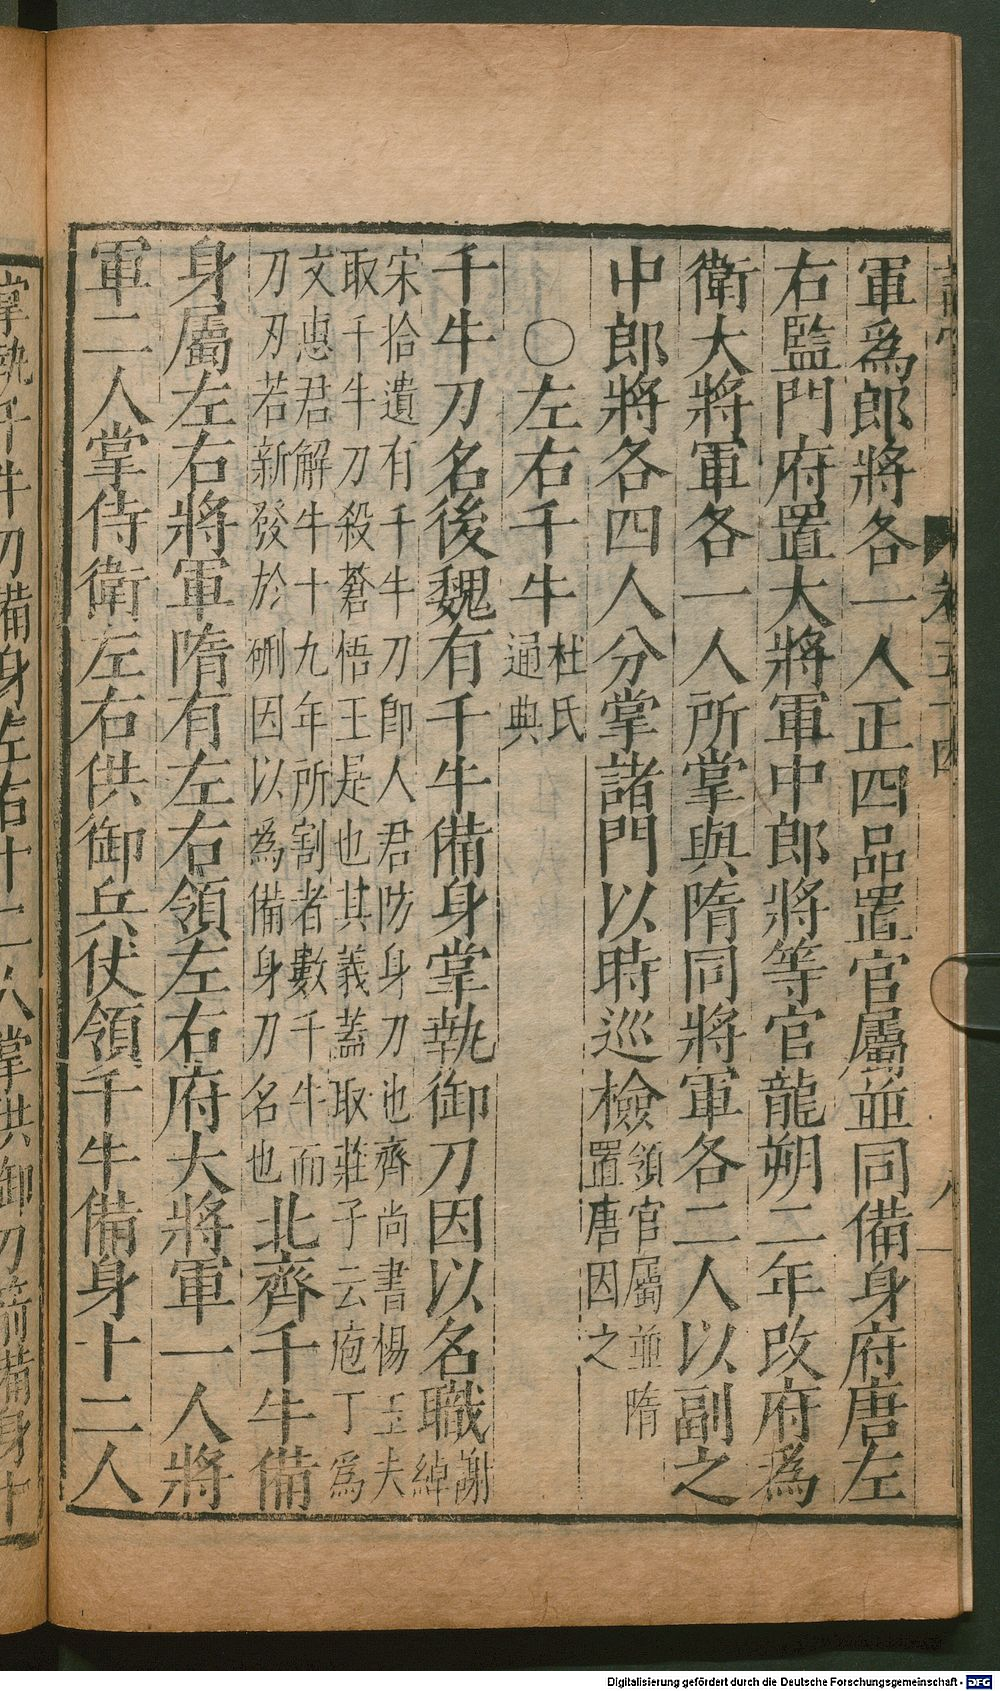 軍爲郎將各一人正四品置官屬並同備身府唐左
右監門府置大將軍中郎將等官龍朔二年改府爲
衛大將軍各一人所掌與隋同將軍各二人以副之
中郎將各四人分掌諸門以時巡檢領官屬並隋
置唐因之
○左右千牛杜氏
通典
千牛刀名後魏有千牛備身掌執御刀因以名職謝
綽
宋拾遺有千牛刀卽人君防身刀也齊尚書楊玉夫
取千牛刀殺蒼梧王是也其義蓋取莊子云庖丁爲
文惠君解牛十九年所割者數千牛而
刀刃若新發於硎因以爲備身刀名也
北齊千牛備
身屬左右將軍隋有左右領左右府大將軍一人將
軍二人掌侍衛左右供御兵仗領千牛備身十二人
掌執千牛刀備身左右十二人掌供御刀箭備身十
Digitalisierung gefördert durch die Deutsche Forschungsgemeinschaft - DFG